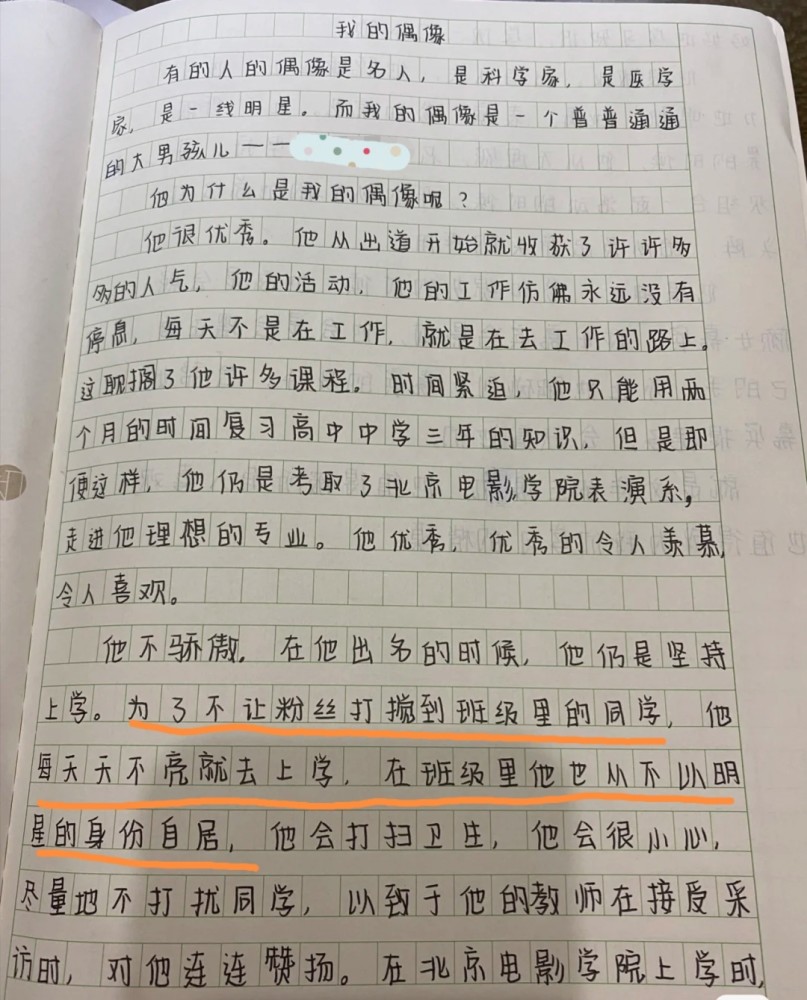 我的偶像
有的人的偶像是名人，是科学家，是医学
家，是一线明星。而我的偶像是一个普普通通
的大男孩儿——
他为什么是我的偶像呢？
他很优秀。他从出道开始就收获了许许多
多的人气，他的活动，他的工作仿佛永远没有
停息，每天不是在工作，就是在去工作的路上。
这耽搁了他许多课程。时间紧迫，他只能用两
个月的时间复习高中中学三年的知识，但是即
便这样，他仍是考取了北京电影学院表演系，
走进他理想的专业。他优秀，优秀的令人羡慕，
令人喜欢。
他不骄傲。在他出名的时候，他仍是坚持
上学。为了不让粉丝打搅到班级里的同学，他
每天天不亮就去上学，在班级里他也从不以明
星的身份自居，他会打扫卫生，他会很小心，
尽量地不打扰同学，以致于他的教师在接受采
访时，对他连连赞扬。在北京电影学院上学时，